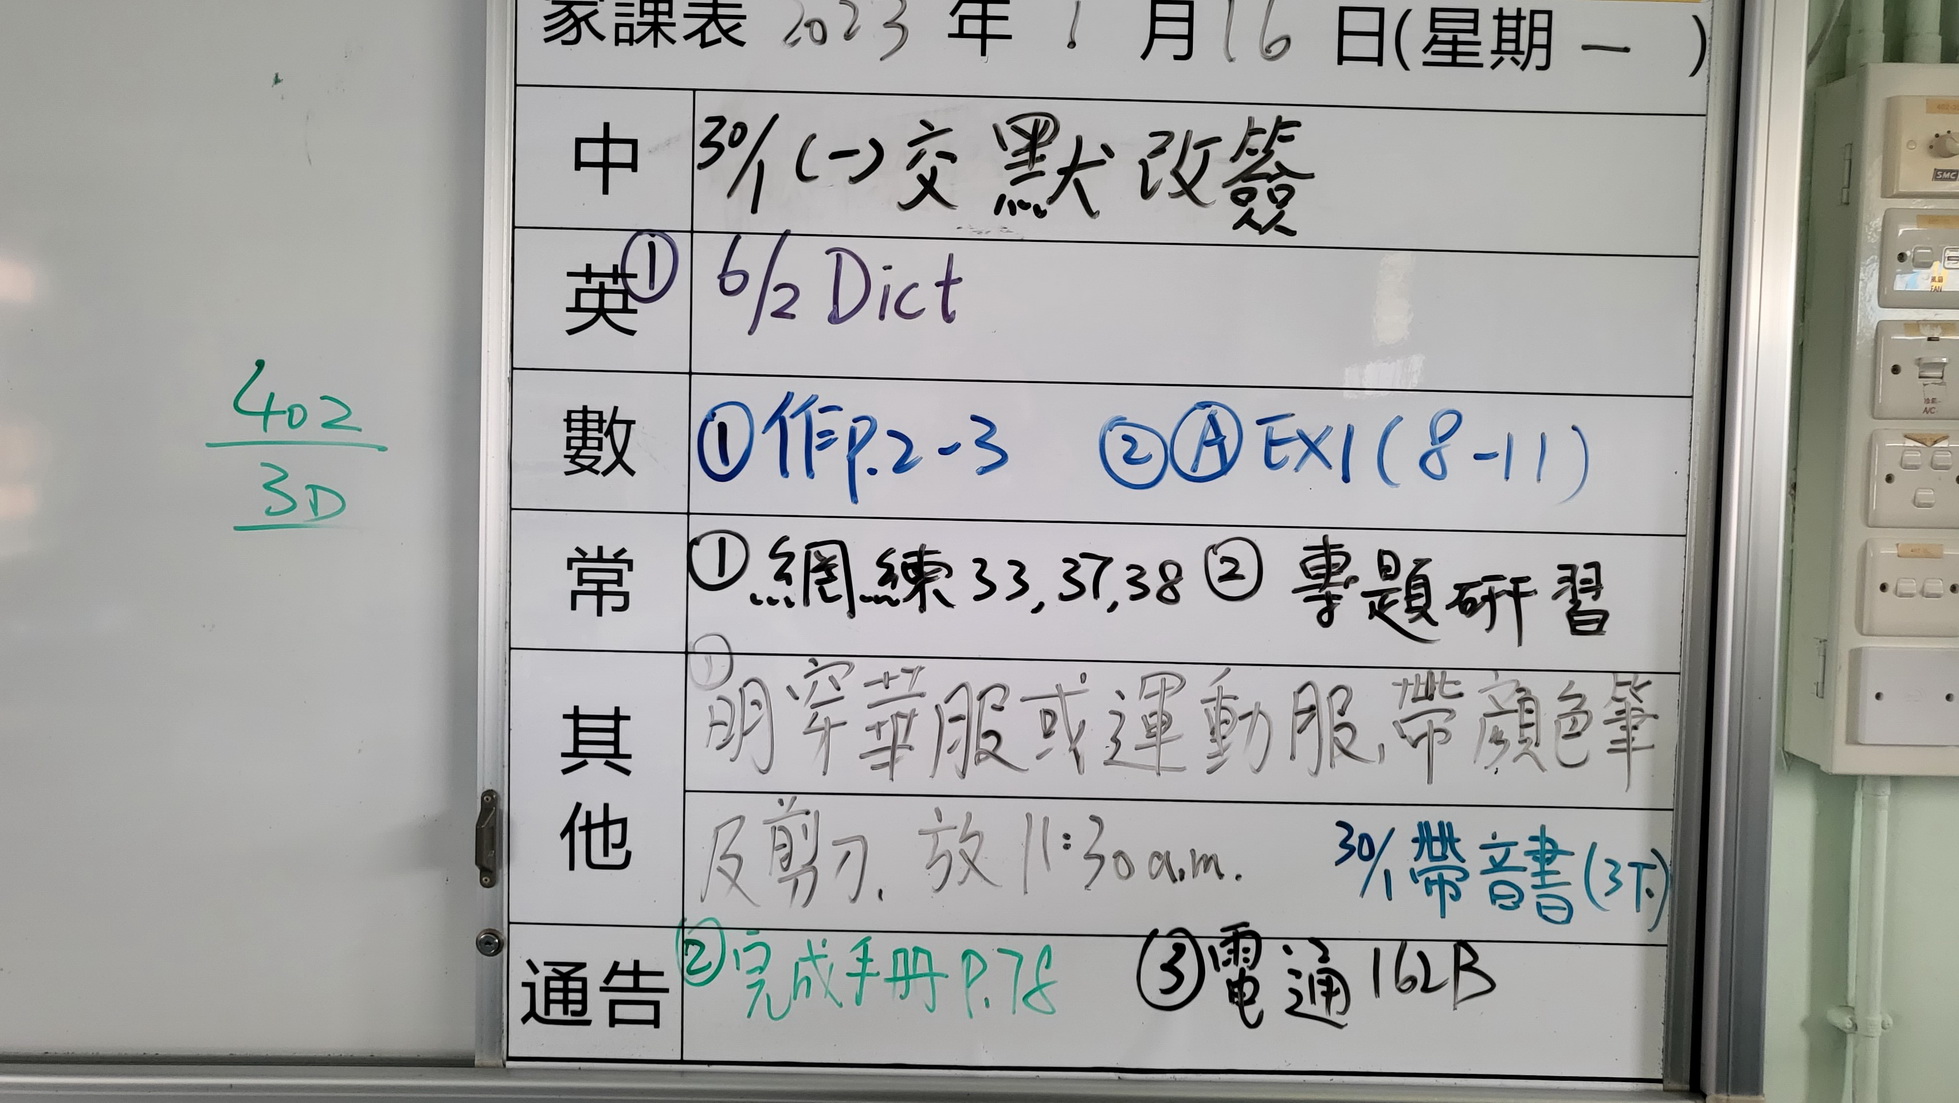 家課表 2023 年 1 月 16 日(星期 一 )
中 30/1 (一) 交 默 改 簽
英 ① 6/2 Dict
數 ① 作P.2-3 ② Ⓐ EX1 (8-11)
常 ① 網練 33, 37, 38 ② 專題研習
其他 ① 明穿華服或運動服,帶顏色筆
及剪刀. 放 11:30 a.m. 30/1 帶音書(3下)
通告 ② 完成手冊 P.78 ③ 電通 162B
402
3D
SMC
FAN
A/C